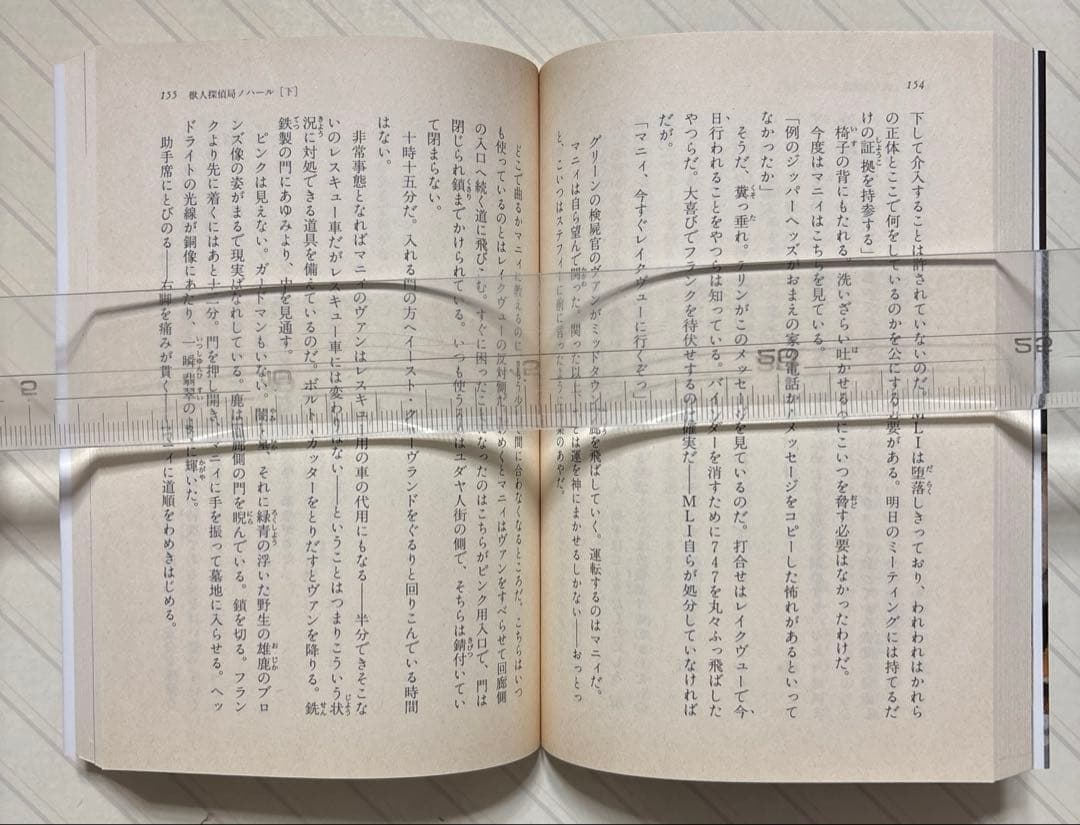 154
下して介入することは許されていないのだ。MLIは堕落しきっており、われわれはかれら
の正体とここで何をしているのかを公にする必要がある。明日のミーティングには持てるだ
けの証拠を持参する」
椅子の背にもたれる。洗いざらい吐かせるのにこいつを脅す必要はなかったわけだ。
今度はマニィはこちらを見ている。
「例のジッパーヘッズがおまえの家の電話からメッセージをコピーした怖れがあるといって
なかったか」
そうだ、糞っ垂れ。テリンがこのメッセージを見ているのだ。打合せはレイクヴューで今
日行われることをやつらは知っている。バインダーを消すために747を丸々ふっ飛ばした
やつらだ。大喜びでフランクを待伏せするのは確実だ――MLI自らが処分していなければ
だが。
「マニィ、今すぐレイクヴューに行くぞっ」
グリーンの検屍官のヴァンがミッドタウン を飛ばしていく。運転するのはマニィだ。
マニィは自ら望んで関った。関った以上 は運を神にまかせるしかない――おっとっ
と、こいつはステフィ に前に言ったように 葉のあやだ。
155 獣人探偵局ノハール［下］
どこで曲るかマニィに教えるのに もう少 間に合わなくなるところだ。こちらはいつ
も使っているのとはレイクヴューの反対側だ。 わめくとマニィはヴァンをすべらせて回廊側
の入口へ続く道に飛びこむ。すぐに困ったことになったのはこちらがピンク用入口で、門は
閉じられ鎖までかけられている。いつも使う はユダヤ人街の側で、そちらは錆付いてい
て閉まらない。
十時十五分だ。入れる門の方へイースト・クリーヴランドをぐるりと回りこんでいる時間
はない。
非常事態となればマニィのヴァンはレスキュー用の車の代用にもなる――半分できそこな
いのレスキュー車だがレスキュー車には変わりはない――ということはつまりこういう状
況に対処できる道具を備えているのだ。ボルト・カッターをとりだすとヴァンを降りる。銑
鉄製の門にあゆみより、中を見通す。
ピンクは見えない。ガードマンもいない。闇と星、それに緑青の浮いた野生の雄鹿のブロ
ンズ像の姿がまるで現実ばなれしている。鹿は回廊側の門を睨んでいる。鎖を切る。フラン
クより先に着くにはあと十二分。門を押し開き、マニィに手を振って墓地に入らせる。ヘッ
ドライトの光線が銅像にあたり、一瞬翡翠のように輝いた。
助手席にとびのる――右脚を痛みが貫く―― マニィに道順をわめきはじめる。
0
10
50
52